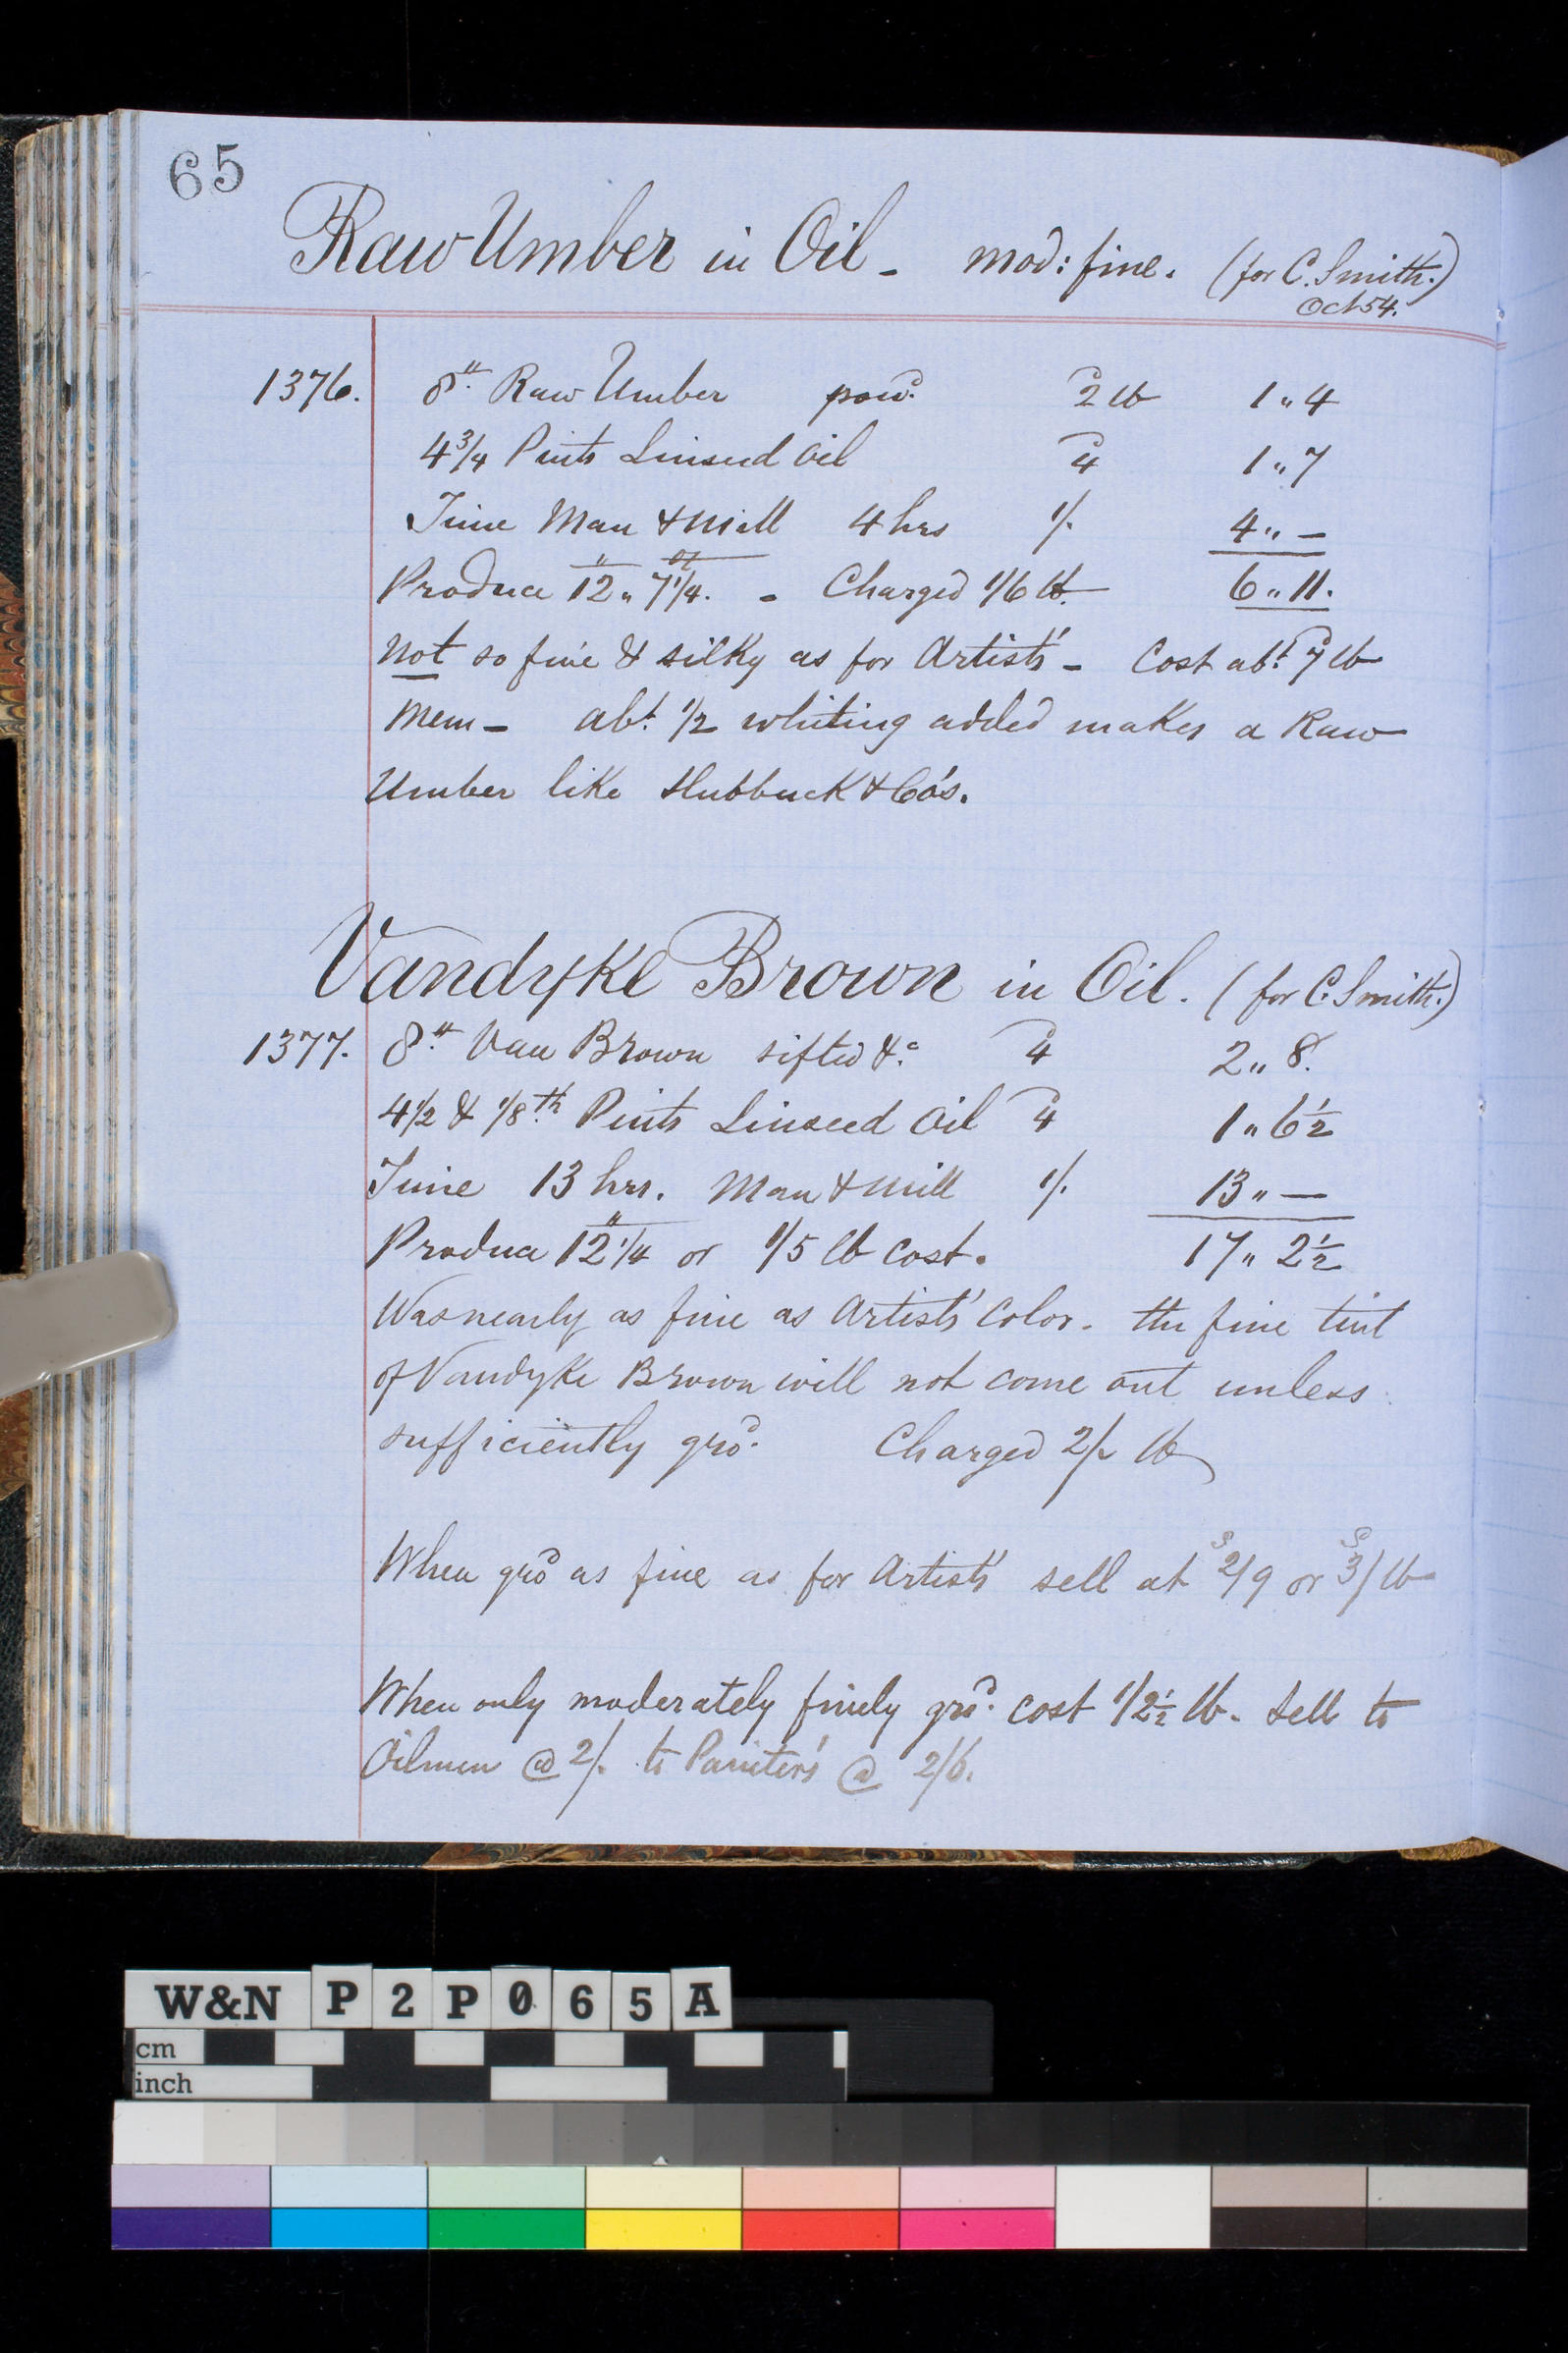 65
Raw Umber in Oil - mod: fine. (for C. Smith.)
Oct 54.
1376. 8 lb. Raw Umber powd. 2d lb 1 " 4
4 3/4 Pints Linseed Oil 4d 1 " 7
Time Man & Mill 4 hrs 1/- 4 " -
Produce 12 lb " 7 1/4 oz. - Charged 1/6 lb. 6 " 11.
Not so fine & silky as for Artists' - Cost abt. 7d lb
Mem - abt. 1/2 whiting added makes a Raw
Umber like Hubbuck & Co's.
Vandyke Brown in Oil. (for C. Smith.)
1377. 8 lb. Van Brown sifted &c. 4d 2 " 8.
4 1/2 & 1/8th. Pints Linseed Oil 4d 1 " 6 1/2
Time 13 hrs. Man & Mill 1/- 13 " -
Produce 12 1/4 lb or 1/5 lb cost. 17 " 2 1/2
Was nearly as fine as Artists' Color - the fine tint
of Vandyke Brown will not come out unless
sufficiently grd. Charged 2/- lb
When grd as fine as for Artists' sell at 2/9 or 3/ lb
When only moderately finely grd. cost 1/2 1/2 lb - Sell to
Oilmen @ 2/- to Painters @ 2/6.
W&N P2P065A
cm
inch